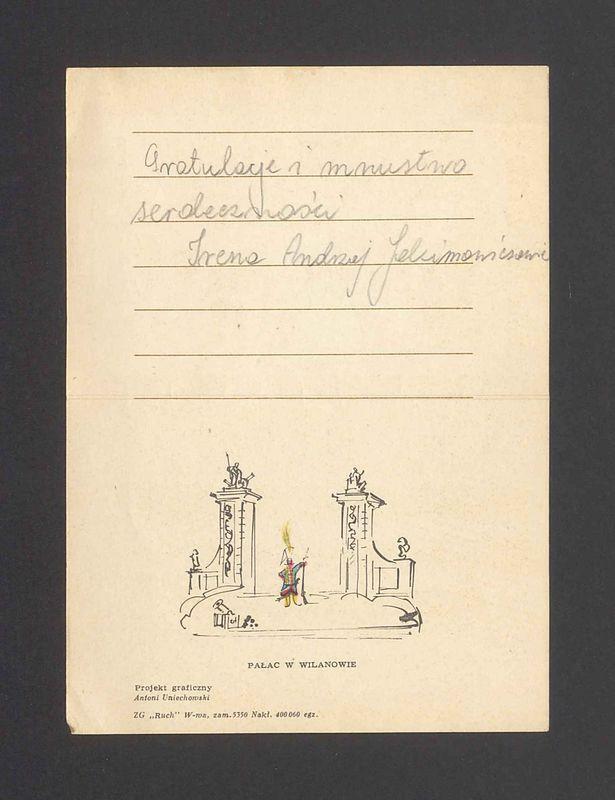 Gratulacje i mnustwo
serdeczności
Irena Andrzej Jakimowiczowie
PAŁAC W WILANOWIE
Projekt graficzny
Antoni Uniechowski
ZG „Ruch" W-wa, zam. 5350 Nakł. 400 060 egz.